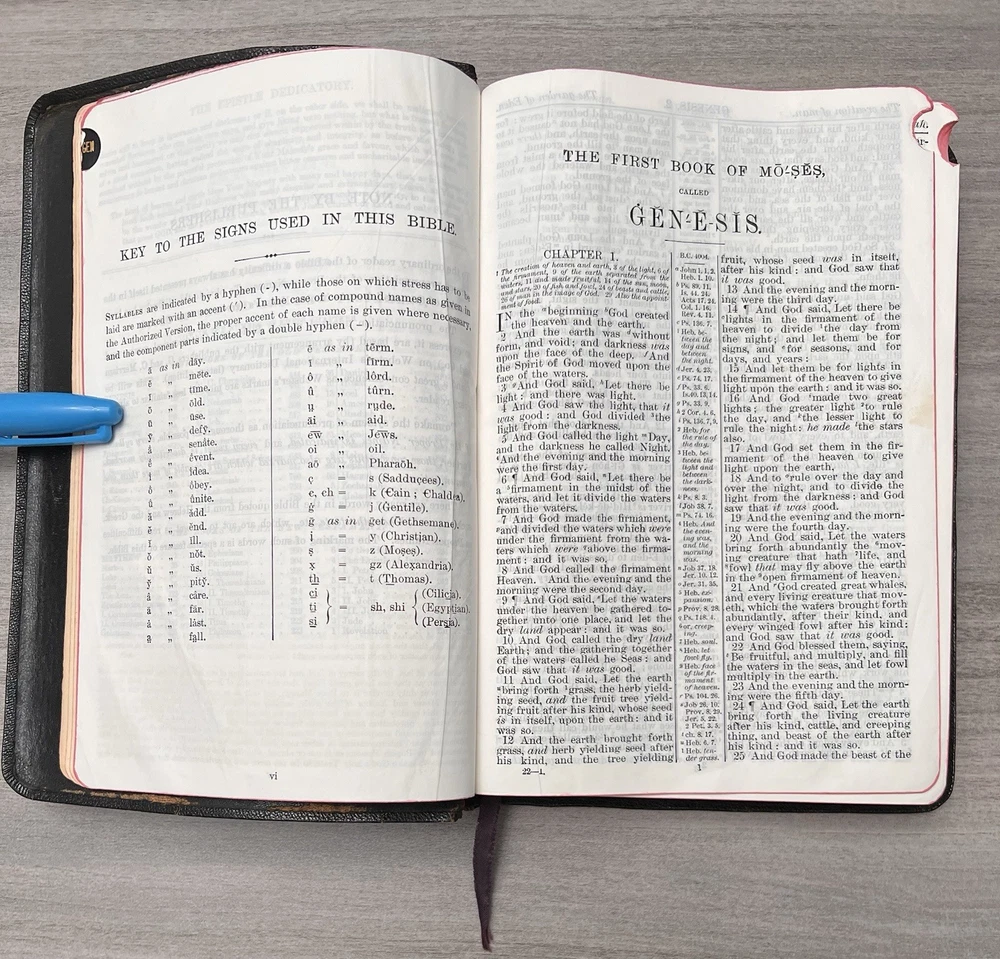 GEN
KEY TO THE SIGNS USED IN THIS BIBLE.
SYLLABLES are indicated by a hyphen (-), while those on which stress has to be
laid are marked with an accent (′). In the case of compound names as given in
the Authorized Version, the proper accent of each name is given where necessary,
and the component parts indicated by a double hyphen (=).
ā as in dāy.
ē „ mēte.
ī „ tīme.
ō „ ōld.
ū „ ūse.
ȳ „ defȳ.
„ senâte.
„ event.
„ idea.
„ obey.
„ unite.
ă „ ădd.
ĕ „ ĕnd.
ĭ „ ĭll.
ŏ „ nŏt.
ŭ „ ŭs.
y̆ „ pity̆.
„ cáre.
„ fär.
„ lȧst.
a̤ „ fa̤ll.
ẽ as in tẽrm.
ĩ „ fĩrm.
ô „ lôrd.
û „ tûrn.
ṳ „ rṳde.
āi „ aid.
ew „ Jews.
oi „ oil.
aō „ Pharaōh.
ç = s (Sadduçees).
c, ch = k (Cain; Chaldea).
ġ = j (Ġentile).
g̅ as in g̅et (Geths̄emane).
i̱ = y (Christi̱an).
ş = z (Moşeş).
x̱ = gz (Alex̱andria).
th = t (Thomas).
ci (Cilicia).
ti = sh, shi (Egyptian).
si (Persia).
vi
THE FIRST BOOK OF MŌ′-ŞĔŞ,
CALLED
ĠĔN′-Ĕ-SĬS.
CHAPTER 1.
1 The creation of heaven and earth, 3 of the light, 6 of
the firmament, 9 of the earth separated from the
waters, 11 and made fruitful, 14 of the sun, moon,
and stars, 20 of fish and fowl, 24 of beasts and cattle,
26 of man in the image of God. 29 Also the appoint-
ment of food.
IN the beginning God created
the heaven and the earth.
2 And the earth was without
form, and void; and darkness was
upon the face of the deep. And
the Spirit of God moved upon the
face of the waters.
3 And God said, Let there be
light: and there was light.
4 And God saw the light, that it
was good: and God divided the
light from the darkness.
5 And God called the light Day,
and the darkness he called Night.
And the evening and the morning
were the first day.
6 ¶ And God said, Let there be
a firmament in the midst of the
waters, and let it divide the waters
from the waters.
7 And God made the firmament,
and divided the waters which were
under the firmament from the wa-
ters which were above the firma-
ment: and it was so.
8 And God called the firmament
Heaven. And the evening and the
morning were the second day.
9 ¶ And God said, Let the waters
under the heaven be gathered to-
gether unto one place, and let the
dry land appear: and it was so.
10 And God called the dry land
Earth; and the gathering together
of the waters called he Seas: and
God saw that it was good.
11 And God said, Let the earth
bring forth grass, the herb yield-
ing seed, and the fruit tree yield-
ing fruit after his kind, whose seed
is in itself, upon the earth: and it
was so.
12 And the earth brought forth
grass, and herb yielding seed after
his kind, and the tree yielding
22—1.
B.C. 4004.
John 1. 1, 2.
Heb. 1. 10.
Ps. 89. 11.
Is. 44. 24.
Acts 17. 24.
Col. 1. 16.
Rev. 4. 11.
Ps. 136. 7.
Heb. be-
tween the
day and
between
the night.
Jer. 4. 23.
Ps. 74. 17.
Ps. 33. 6.
Is. 40. 13, 14.
Ps. 33. 9.
2 Cor. 4. 6.
Ps. 136. 7, 9.
Heb. for
the rule of
the day.
Heb. be-
tween the
light and
between
the dark-
ness.
Ps. 8. 3.
Job 38. 7.
Ps. 74. 16.
Heb. And
the even-
ing was,
and the
morning
was.
Job 37. 18.
Jer. 10. 12.
Jer. 31. 35.
Heb. ex-
pansion.
Prov. 8. 28.
Ps. 148. 4.
or, creep-
ing.
Heb. soul.
Heb. let
fowl fly.
Heb. face
of the fir-
mament
of heaven.
Ps. 104. 26.
Job 26. 10.
Prov. 8. 29.
Jer. 5. 22.
2 Pet. 3. 5.
ch. 8. 17.
Heb. 6. 7.
Heb. ten-
der grass.
1
fruit, whose seed was in itself,
after his kind: and God saw that
it was good.
13 And the evening and the morn-
ing were the third day.
14 ¶ And God said, Let there be
lights in the firmament of the
heaven to divide the day from
the night; and let them be for
signs, and for seasons, and for
days, and years:
15 And let them be for lights in
the firmament of the heaven to give
light upon the earth: and it was so.
16 And God made two great
lights; the greater light to rule
the day, and the lesser light to
rule the night: he made the stars
also.
17 And God set them in the fir-
mament of the heaven to give
light upon the earth,
18 And to rule over the day and
over the night, and to divide the
light from the darkness: and God
saw that it was good.
19 And the evening and the morn-
ing were the fourth day.
20 And God said, Let the waters
bring forth abundantly the mov-
ing creature that hath life, and
fowl that may fly above the earth
in the open firmament of heaven.
21 And God created great whales,
and every living creature that mov-
eth, which the waters brought forth
abundantly, after their kind, and
every winged fowl after his kind:
and God saw that it was good.
22 And God blessed them, saying,
Be fruitful, and multiply, and fill
the waters in the seas, and let fowl
multiply in the earth.
23 And the evening and the morn-
ing were the fifth day.
24 ¶ And God said, Let the earth
bring forth the living creature
after his kind, cattle, and creeping
thing, and beast of the earth after
his kind: and it was so.
25 And God made the beast of the